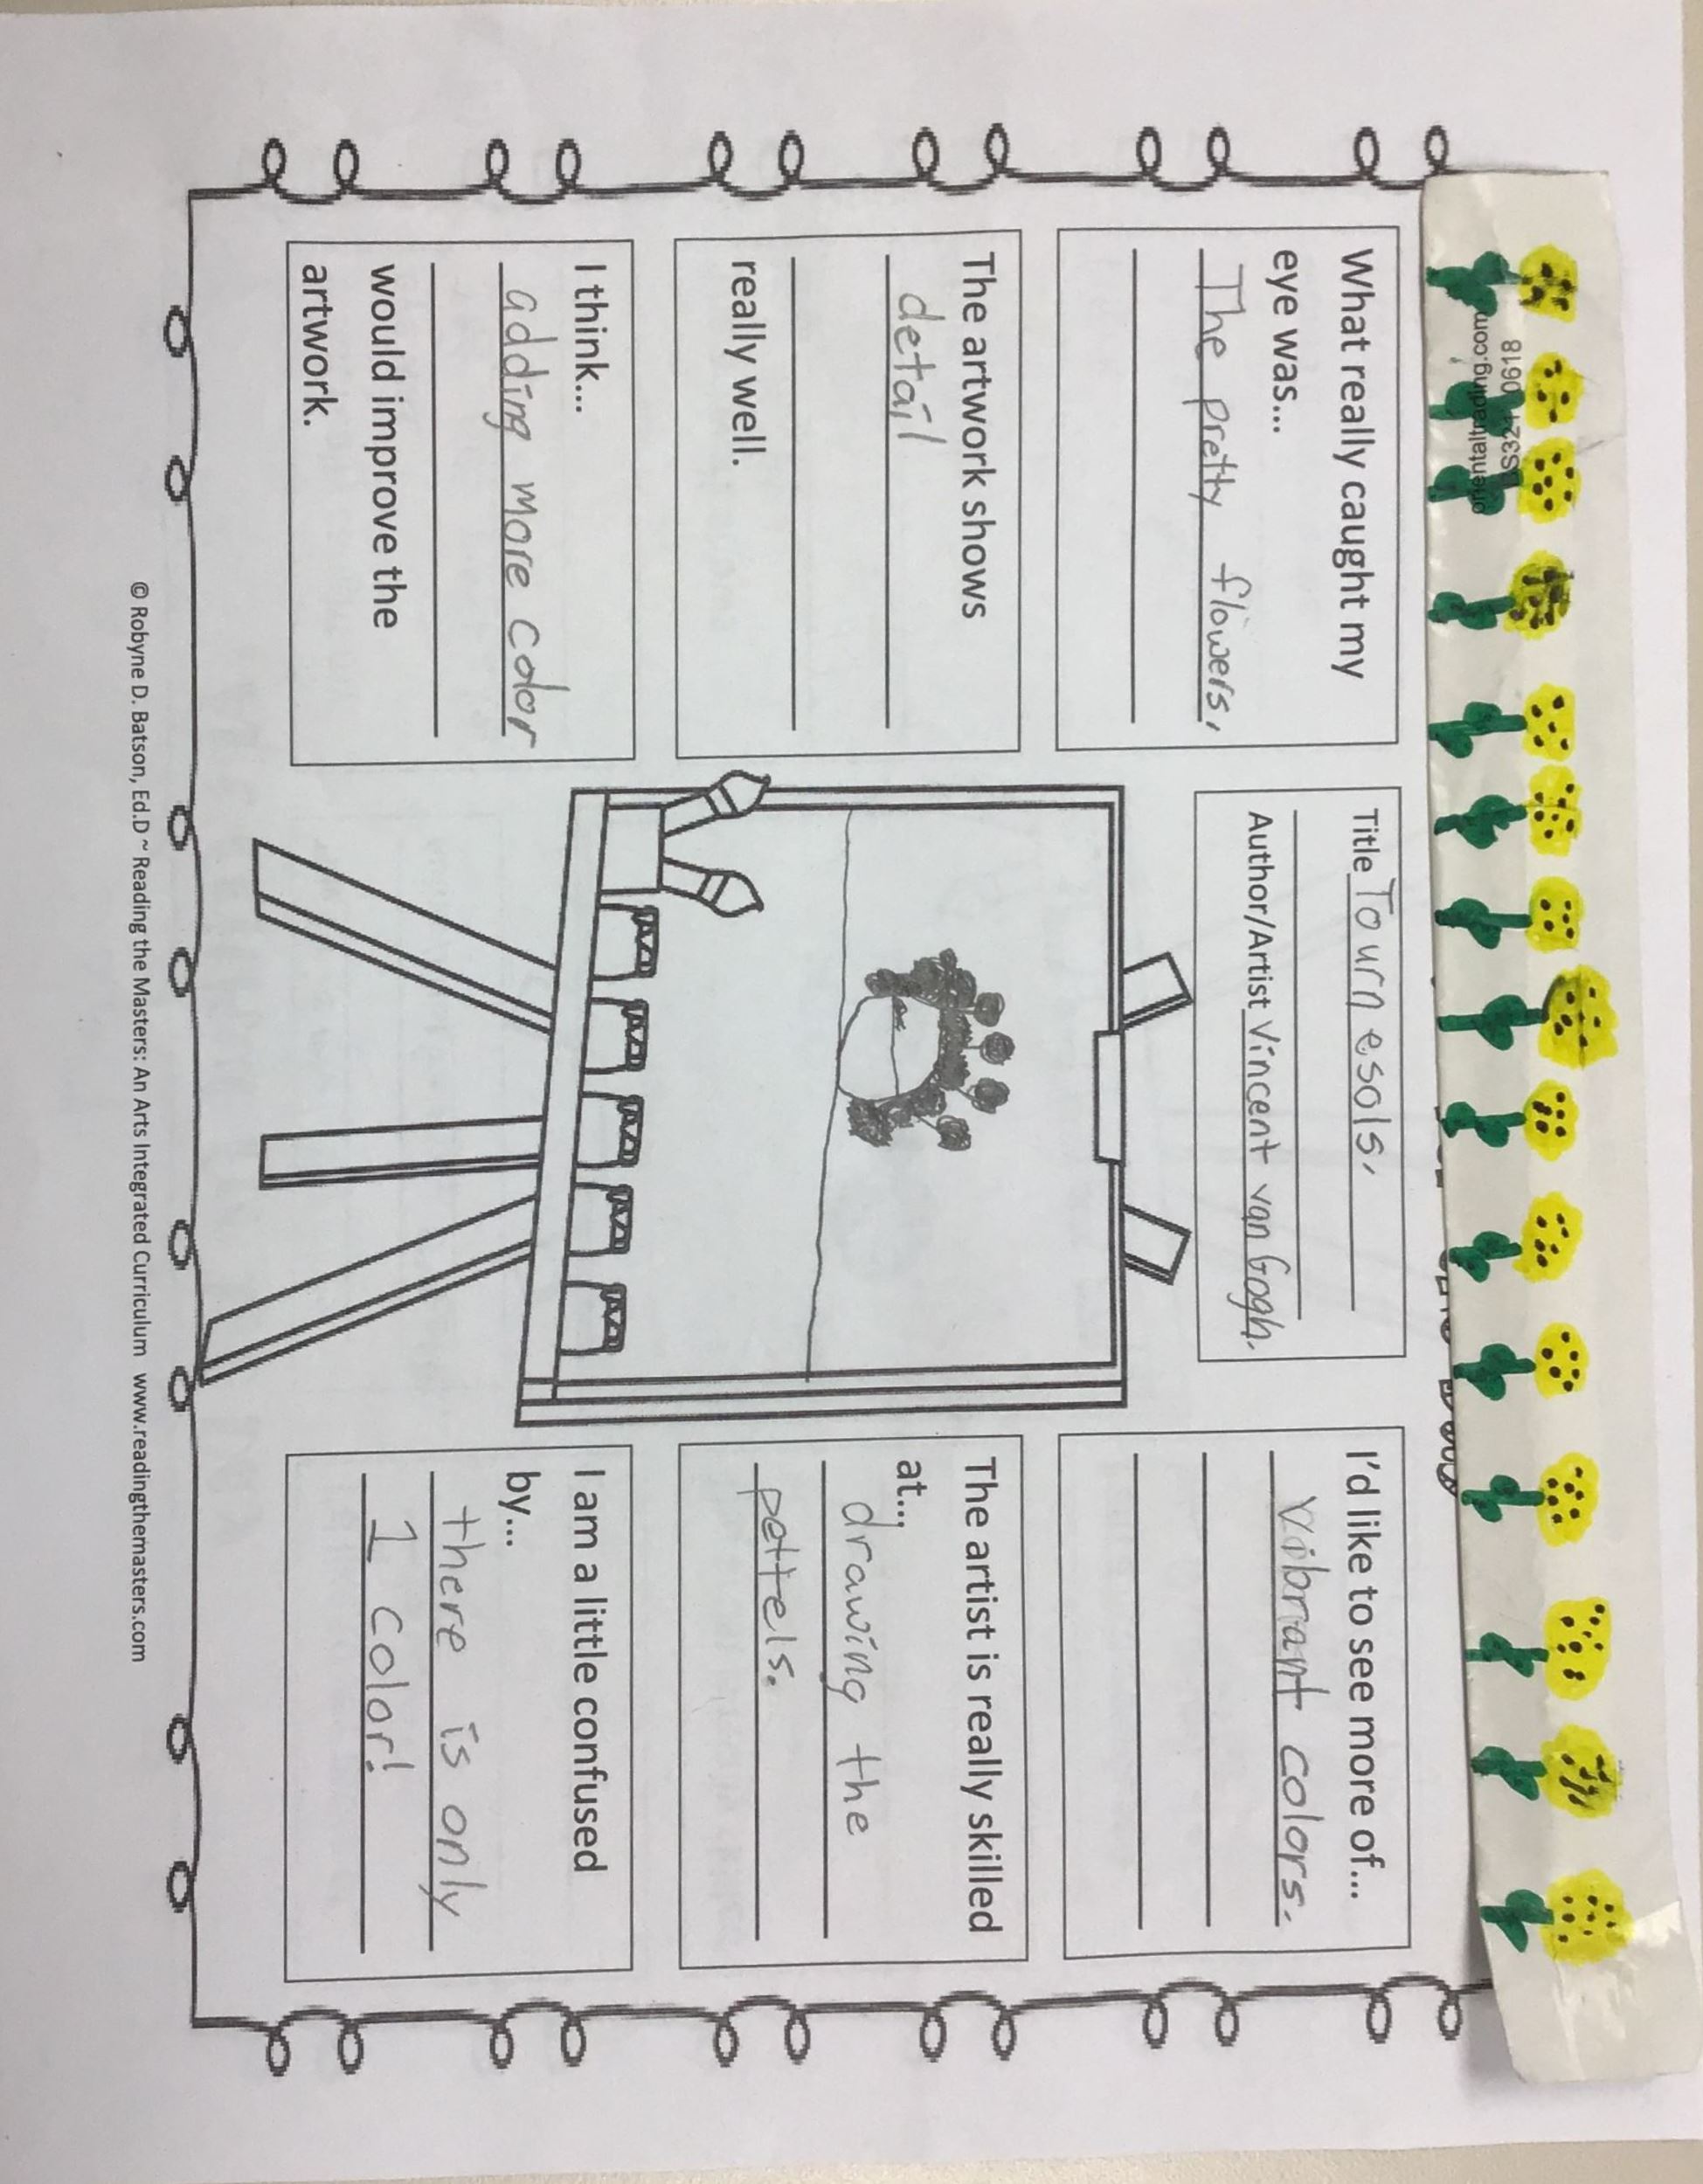 What really caught my
eye was...
The pretty flowers.
The artwork shows
detail
really well.
I think...
adding more color
would improve the
artwork.
Title Tournesols.
Author/Artist Vincent van Gogh.
I'd like to see more of...
vibrant colors.
The artist is really skilled
at...
drawing the
pettels.
I am a little confused
by...
there is only
1 color!
© Robyne D. Batson, Ed.D ~ Reading the Masters: An Arts Integrated Curriculum www.readingthemasters.com
0618